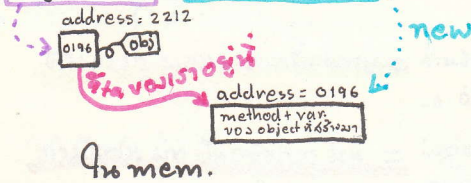 address: 2212
new
0196 obj
ที่อยู่ของเราอยู่นี่
address = 0196
method + var.
ของ object ที่สร้างมา
ใน mem.